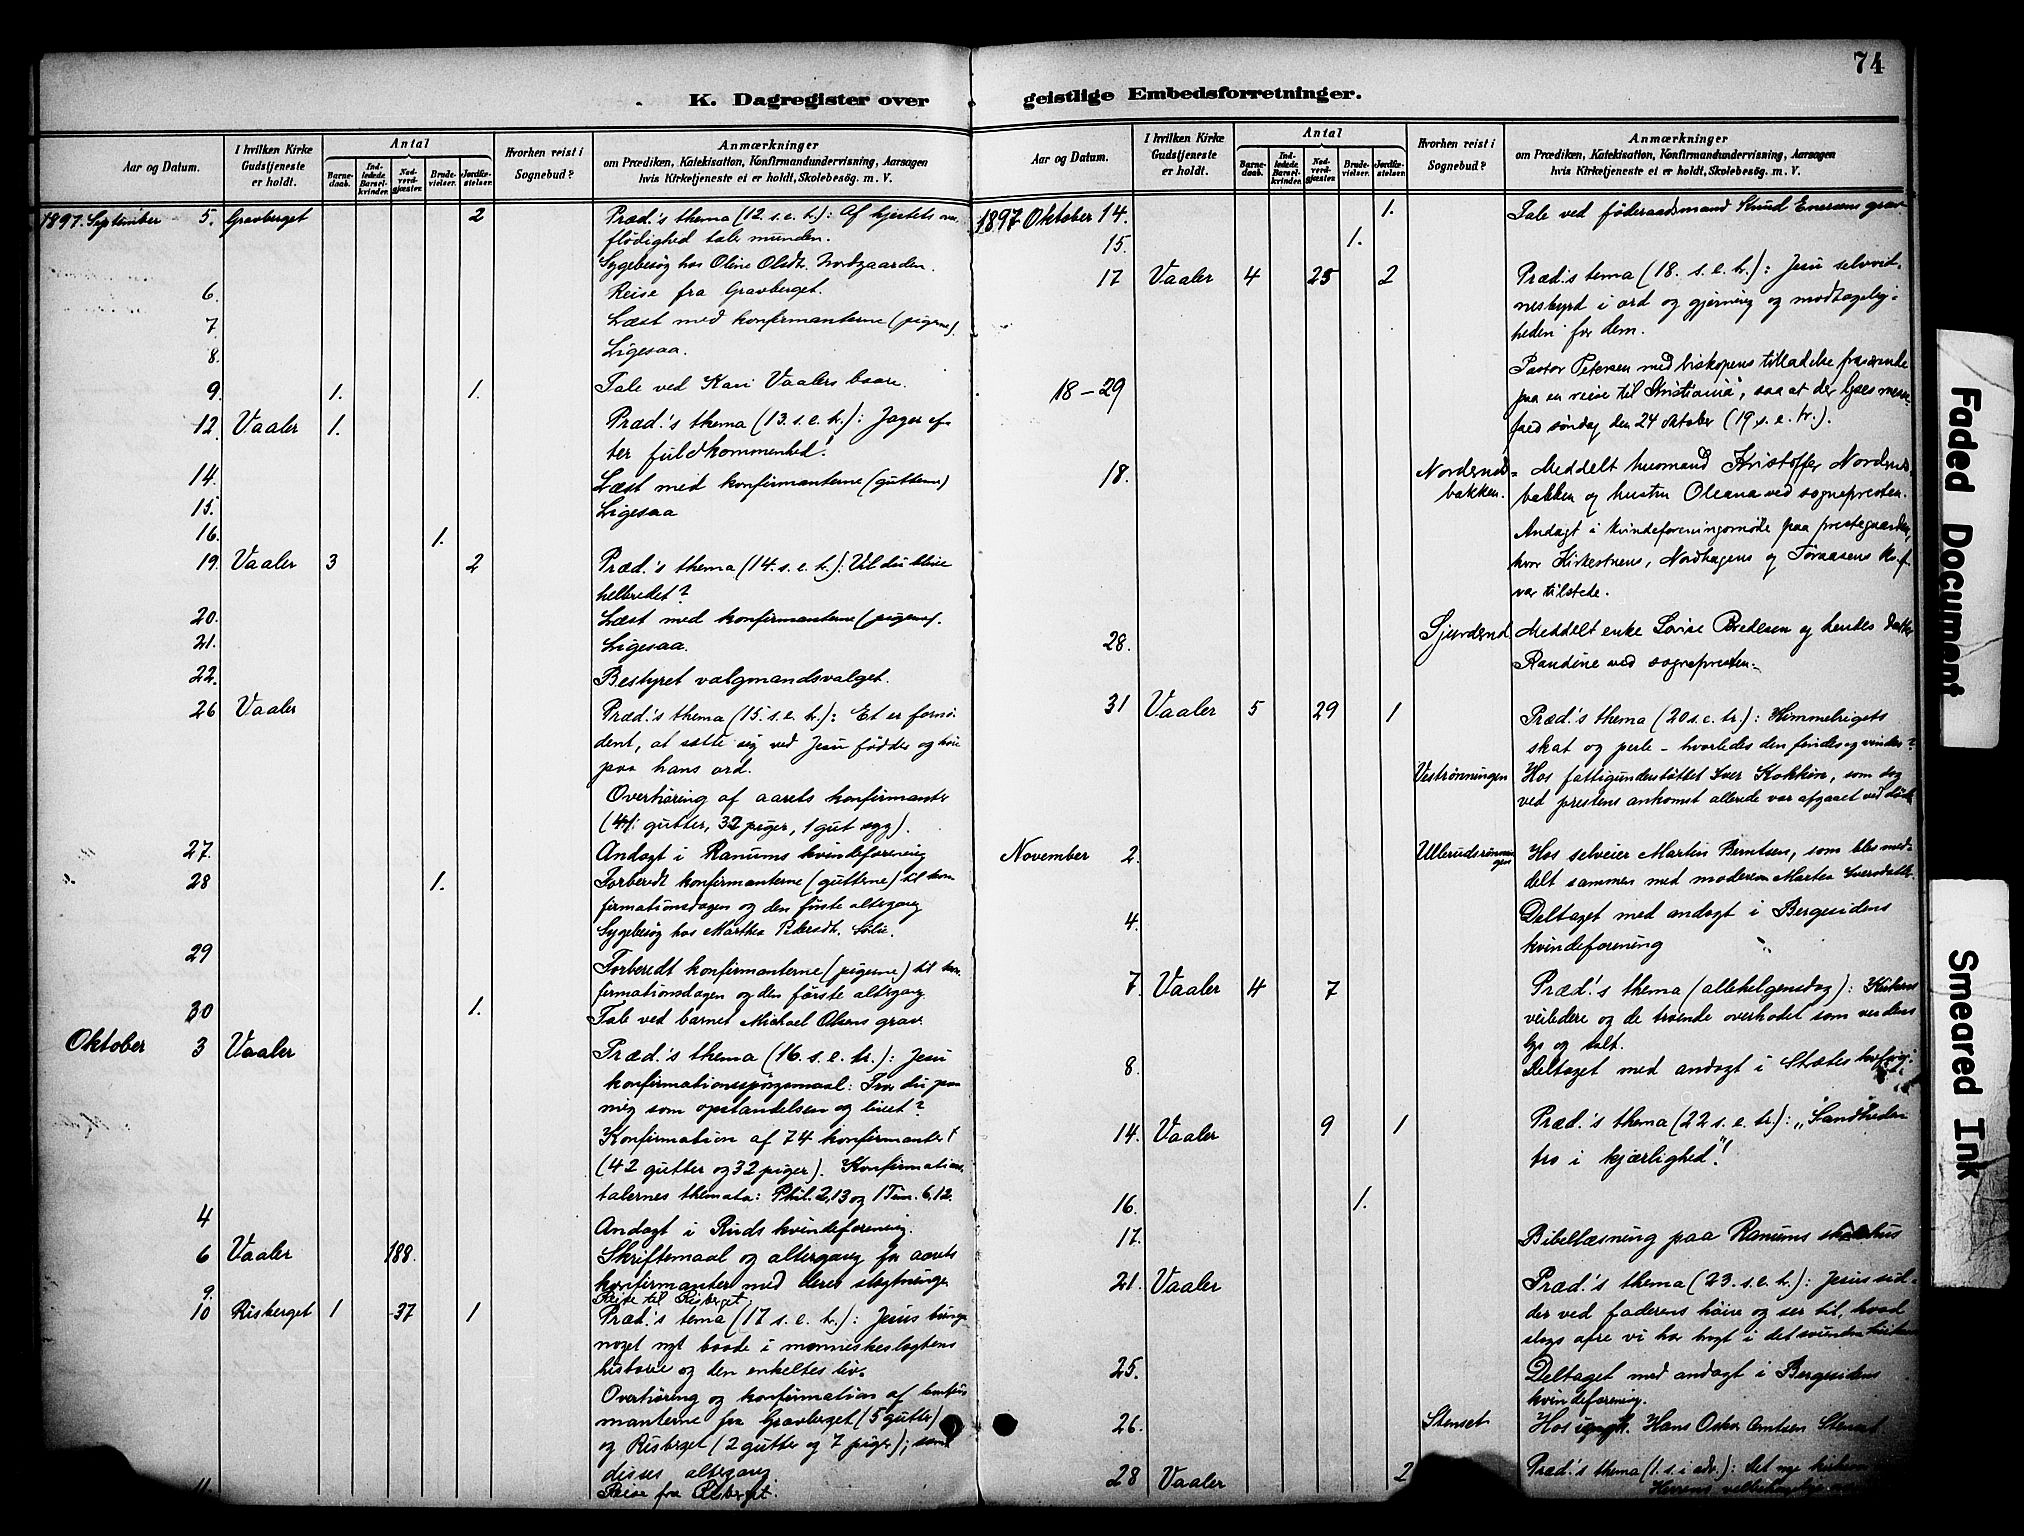 74
K. Dagregister over
Aar og Datum.
I hvilken Kirke Gudstjeneste er holdt.
Antal
Barnedaab.
Indledede Barselkvinder.
Nadverdgjæster.
Brudevielser.
Jordfæstelser.
Hvorhen reist i Sognebud?
Anmærkninger
om Prædiken, Katekisation, Konfirmandundervisning, Aarsagen
hvis Kirketjeneste ei er holdt, Skolebesøg. m. V.
1897. September 5. Gravberget 2 Præd.'s thema (12. s.e. tr.): Af hjertets
flødighed taler munden.
Sygebesøg hos Oline Olsdt. Nordgaarden.
6. Reise fra Gravberget.
7 Læst med konfirmanterne (pigerne).
8. Ligesaa.
9. 1. 1. Tale ved Kari Vaalers baare.
12. Vaaler 1. Præd.'s thema (13. s.e. tr.): Jager ef-
ter fuldkommenhed!
14. Læst med konfirmanterne (gutterne)
15. Ligesaa
16. 1.
19. Vaaler 3 2 Præd.'s thema (14. s.e. tr.): Vil du blive
helbredet?
20. Læst med konfirmanterne (pigerne).
21. Ligesaa.
22. Bestyret valgmandsvalget.
26 Vaaler Præd.'s thema (15. s.e. tr.): Et er forn-
dent, at sætte sig ved Jesu fødder og høre
paa hans ord.
Overhøring af aarets konfirmanter
(41 gutter, 32 piger, 1 gut syg).
27. Andagt i Ranums kvindeforening
28 1. Forberedt konfirmanterne (gutterne) til kon-
firmationsdagen og den første altergang
Sygebesøg hos Marthea Pedersdt. Sølie.
29 Forberedt konfirmanterne (pigerne) til kon-
firmationsdagen og den første altergang
30 1. Tale ved barnet Michael Olsens grav.
Oktober 3 Vaaler Præd.'s thema (16. s.e. tr.): Jesu
konfirmationsspørgsmaal: Tror du paa
mig som opstandelsen og livet?
Konfirmation af 74 konfirmanter
(42 gutter og 32 piger). Konfirmations-
talernes themata: Phil. 2,13 og 1 Tim. 6,12.
4 Andagt i Ruds kvindeforening.
6 Vaaler 188. Skriftemaal og altergang for aarets
konfirmanter med deres slegtninge
9. Reise til Risberget.
10 Risberget 1 37 1 Præd.'s tema (17 s.e. tr.): Jesus
noget nyt baade i menneskeslegtens
historie og den enkeltes liv.
Overhøring og konfirmation af konfir-
manterne fra Gravberget (5 gutter)
og Risberget (2 gutter og 7 piger);
disses altergang.
11 Reise fra Risberget.
geistlige Embedsforretninger.
Aar og Datum.
I hvilken Kirke Gudstjeneste er holdt.
Antal
Barnedaab.
Indledede Barselkvinder.
Nadverdgjæster.
Brudevielser.
Jordfæstelser.
Hvorhen reist i Sognebud?
Anmærkninger
om Prædiken, Katekisation, Konfirmandundervisning, Aarsagen
hvis Kirketjeneste ei er holdt, Skolebesøg. m. V.
1897 Oktober 14. 1. Tale ved føderaadsmand Knud Enersens grav
15. 1.
17 Vaaler 4 25 2 Præd.s tema (18. s.e. tr.): Jesu selvvid-
nesbyrd i ord og gjerning og modtagelig-
heden for dem.
18-29 Pastor Petersen med biskopens tilladelse fraværende
paa en reise til Kristiania, saa at der
søndag den 24 oktober (19 s.e. tr.).
18. Nordsnds-
bakken. Meddelt husmand Kristoffer
bakken og hustru Oleana ved sognepresten.
Andagt i kvindeforeningsmøde paa prestegaarden,
hvor Kirkestuens, Nordhagens og Toraasens kv.f.
var tilstede.
28. Sjurderud Meddelt enke Lovise Bredesen og hendes datter
Randine ved sognepresten.
31 Vaaler 5 29 1 Præd.'s thema (20 s.e. tr.): Himmelrigets
skat og perle - hvorledes den findes og vindes?
Vestrønningen Hos fattigunderstøttet Iver Kokkin, som dog
ved prestens ankomst allerede var afgaaet ved døden
November 2. Ullerudrønnin-
gen Hos selveier Martin Berntsen, som blev med-
delt sammen med moderen Martea Iversdatter.
4. Deltaget med andagt i Bergesidens
kvindeforening
7. Vaaler 4 7 Præd.'s thema (allehelgensdag): Kirkens
veiledere og de troende overhodet som verdens
lys og salt.
8. Deltaget med andagt i
14. Vaaler 9 1 Præd.'s thema (22 s.e. tr.): „Sandheden
tro i kjærlighed"!
16. 1.
17. Bibellæsning paa Ranums skolehus
21. Vaaler Præd.'s thema (23. s.e. tr.): Jesus sid-
der ved faderens høire og ser til, hvad
slags ofre vi har bragt i det svundne kirkeaar
25. Deltaget med andagt i Bergesidens
kvindeforening.
26. Stenset Hos Hans Oskar Arntsen Stenset
28 Vaaler 2 Præd.'s thema (1. s. i adv.): det nye kirkeaar
Herrens
Faded Document
Smeared Ink